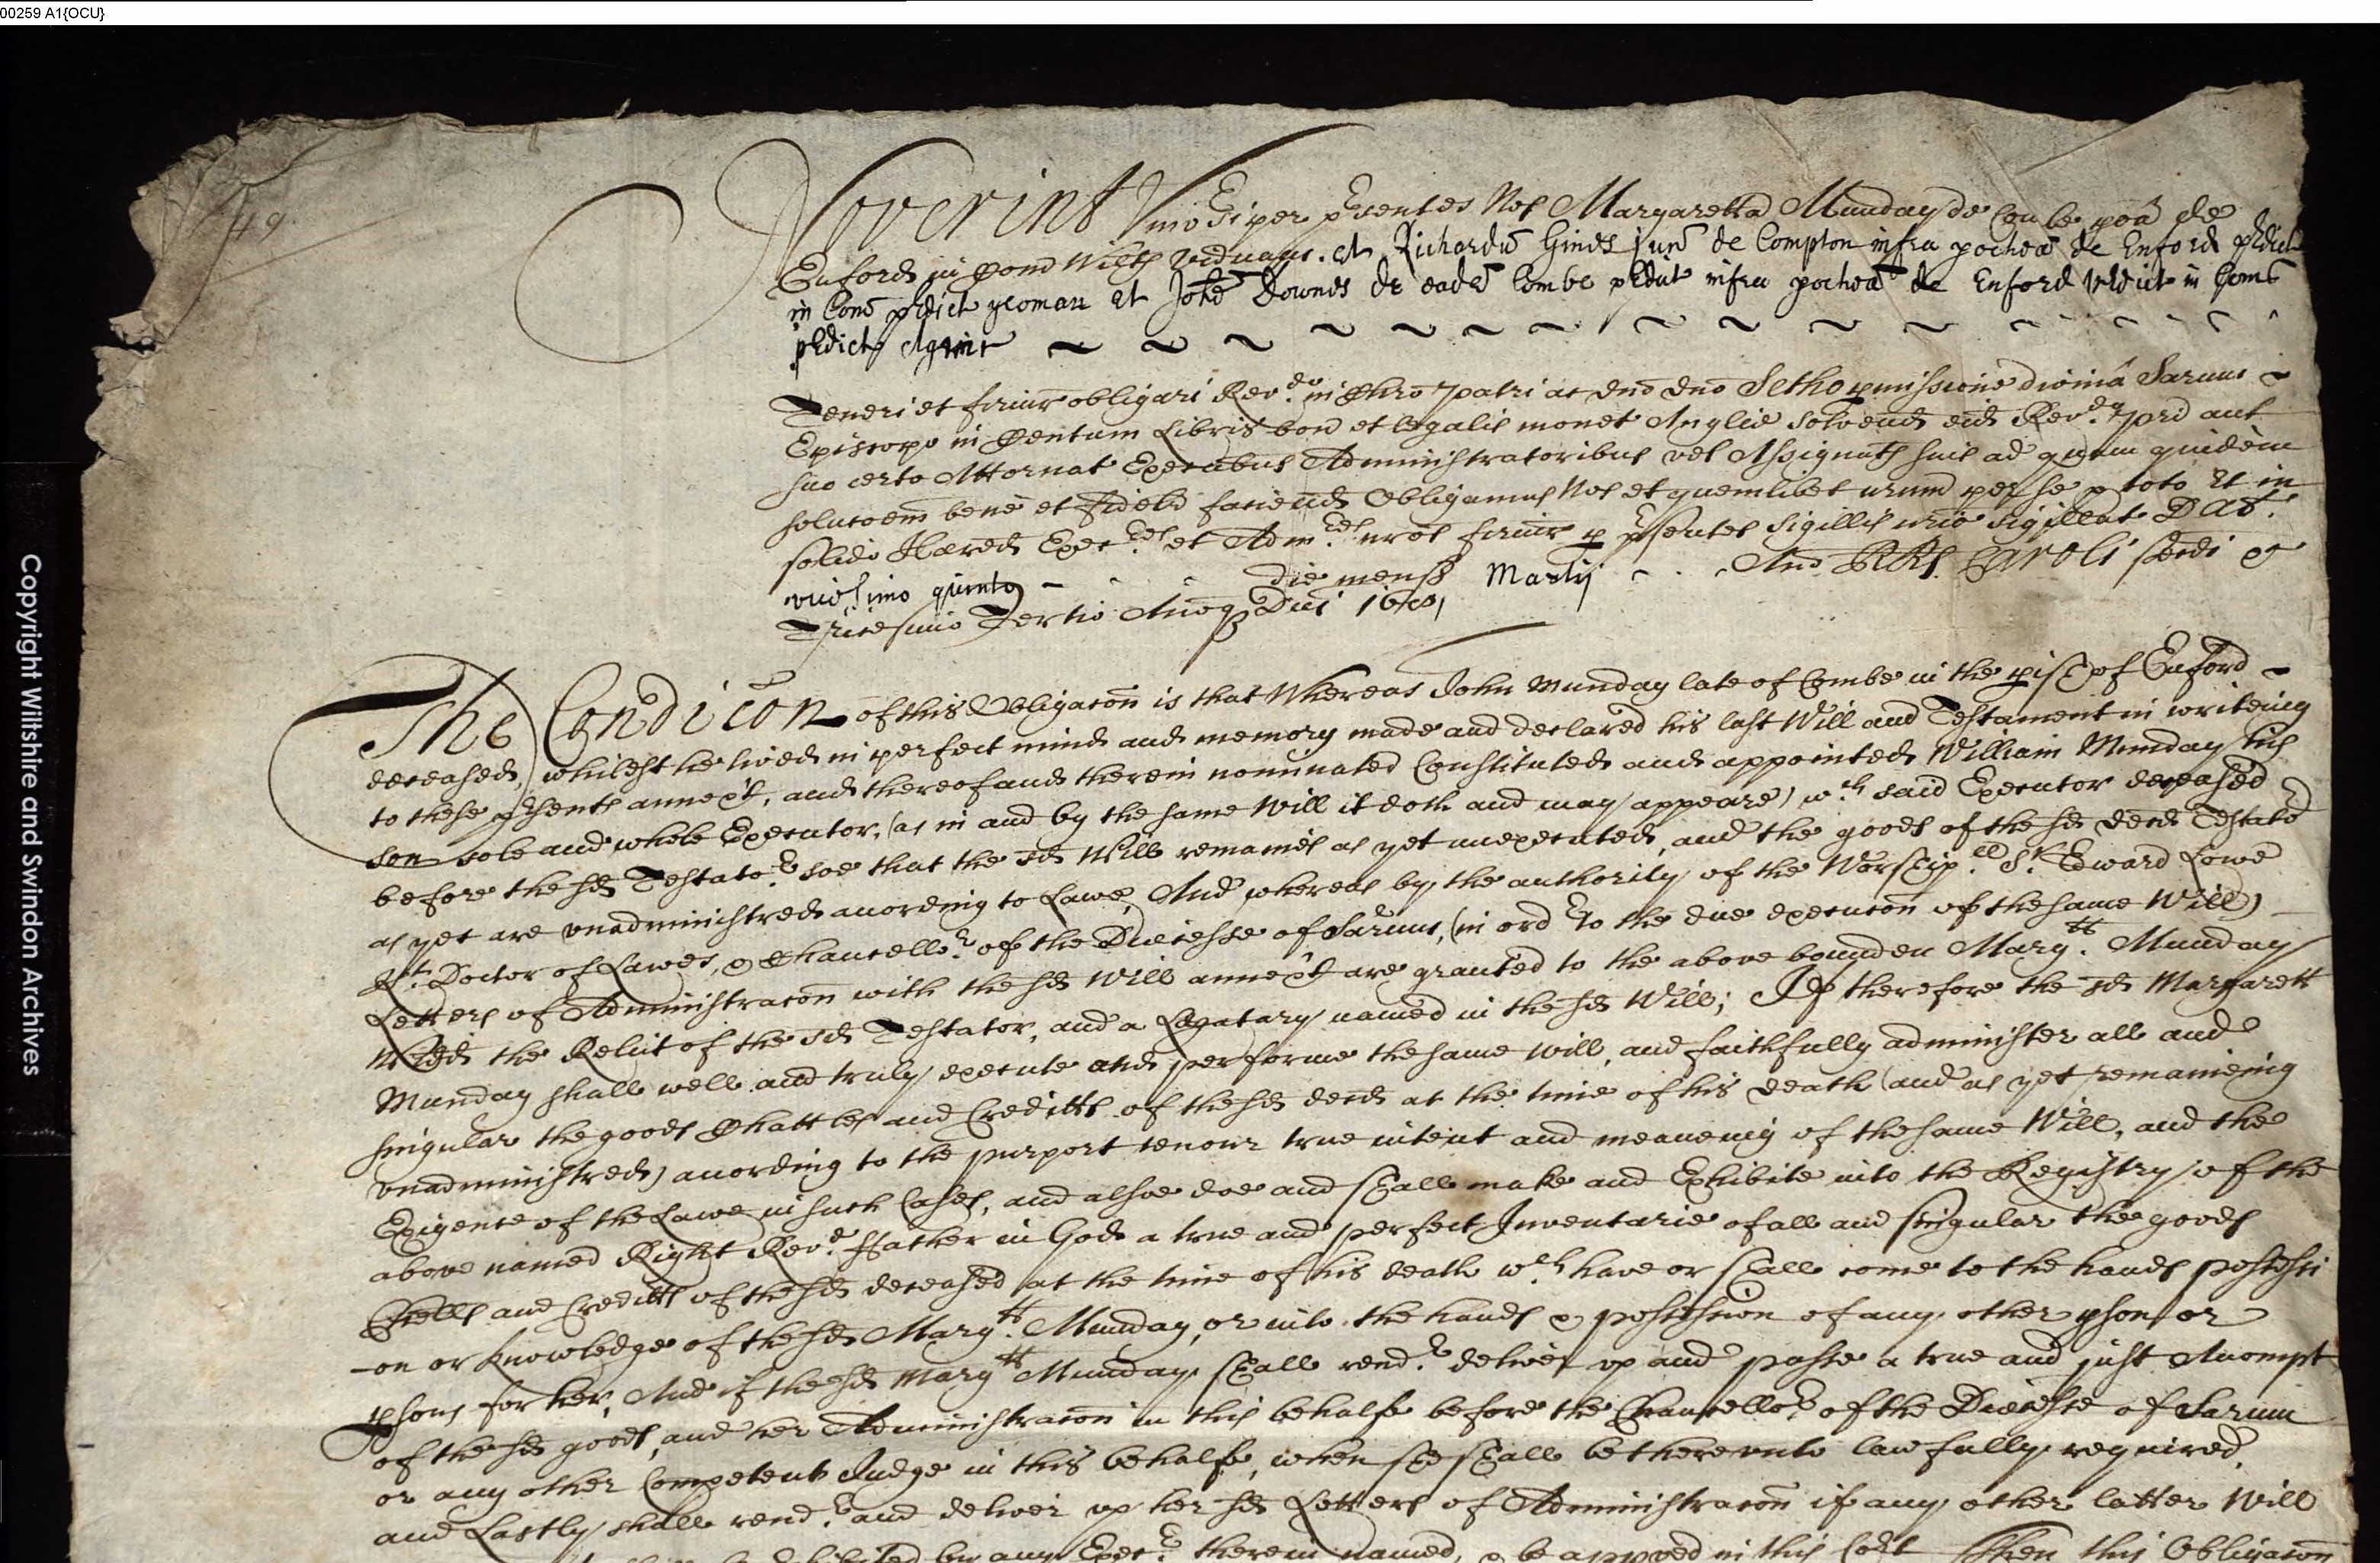 00259 A1{OCU}
49
Noverint Universi per presentes Nos Margaretta Munday de Combe poa de
Enford in Com Wiltes viduam. et Richardu Gines jun de Compton infra pochea de Enford pdict
in Com pdict yeoman et Johe Downes de eade Combe pdict infra pochea de Enford pdict in Com
pdict Agric ~ ~ ~ ~ ~ ~ ~ ~ ~ ~ ~ ~ ~ ~
Teneri et firmr obligari Revdo in Chro Patri ac dno dno Setho pmissione divinâ Sarum ~
Episcopo in Centum Libris bon et legalis monet Anglie solvend eid Revdo pri aut
suo certo Attornat Executoribus Administratoribus vel Assignats suis ad quam quidem
solucoem bene et fidelr faciend Obligamus Nos et quemlibet nrum per se p toto et in
solido Haered Execres et Admres nros firmr p psentes Sigillis nris sigillat Dat.
vicesimo quinto - - - die mensis Martij - - - Ano RRs Caroli scdi &
Tricesimo Tertio Anoq Dni 1681
The Condicon of this Obligacon is that Whereas John Munday late of Combe in the pish of Enford -
deceased, whilest he lived in perfect mind and memory made and declared his last Will and Testament in writeing
to these psents annext, and thereof and therein nominated Constituted and appointed William Munday his
son sole and whole Executor, (as in and by the same Will it doth and may appeare) wch said Executor deceased
before the sd Testator soe that the sd Will remaines as yet unexecuted, and the goods of the sd decd Testator
as yet are unadministred according to Lawe, And whereas by the authority of the Worshipll Sr. Edward Lowe
Kt. Doctor of Lawes, & Chancellor of the Diocesse of Sarum, (in order to the due execucon of the same Will)
Letters of Administracon with the sd Will annext are granted to the above bounden Margtt. Munday
Widd the Relict of the sd Testator, and a Legatary named in the sd Will; If therefore the sd Margarett
Munday shall well and truly execute and performe the same will, and faithfully administer all and
singular the goods Chattles and Creditts of the sd decd at the time of his death (and as yet remaineing
unadministred) according to the purport tenour true intent and meaneing of the same Will, and the
Exigence of the Lawe in such Cases, and alsoe doe and shall make and Exhibite into the Registry of the
above named Right Revd. Father in God a true and perfect Inventarie of all and singular the goods
Chells and Creditts of the sd deceased at the time of his death wch have or shall come to the hands possessi
-on or knowledge of the sd Margtt. Munday, or into the hands & possession of any other pson or
psons for her, And if the sd Margtt Munday shall render deliver up and passe a true and just Accompt
of the sd goods, and her Administracon in this behalfe before the Chancellor of the Diocesse of Sarum
or any other Competent Judge in this behalfe, when she shall be thereunto lawfully required,
and Lastly shall render and deliver up her sd Letters of Administracon if any other latter Will
by any Execr therein named, & be approved in this Court Then this Obligacon
Copyright Wiltshire and Swindon Archives